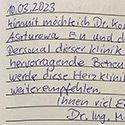 10.03.2023
Hiermit möchte ich Dr. Kon
und d
Personal dieser Klinik
hervorragende Betreu
werde diese Herzklinik
weiterempfehlen.
Ihnen viel E
Dr. Ing. H